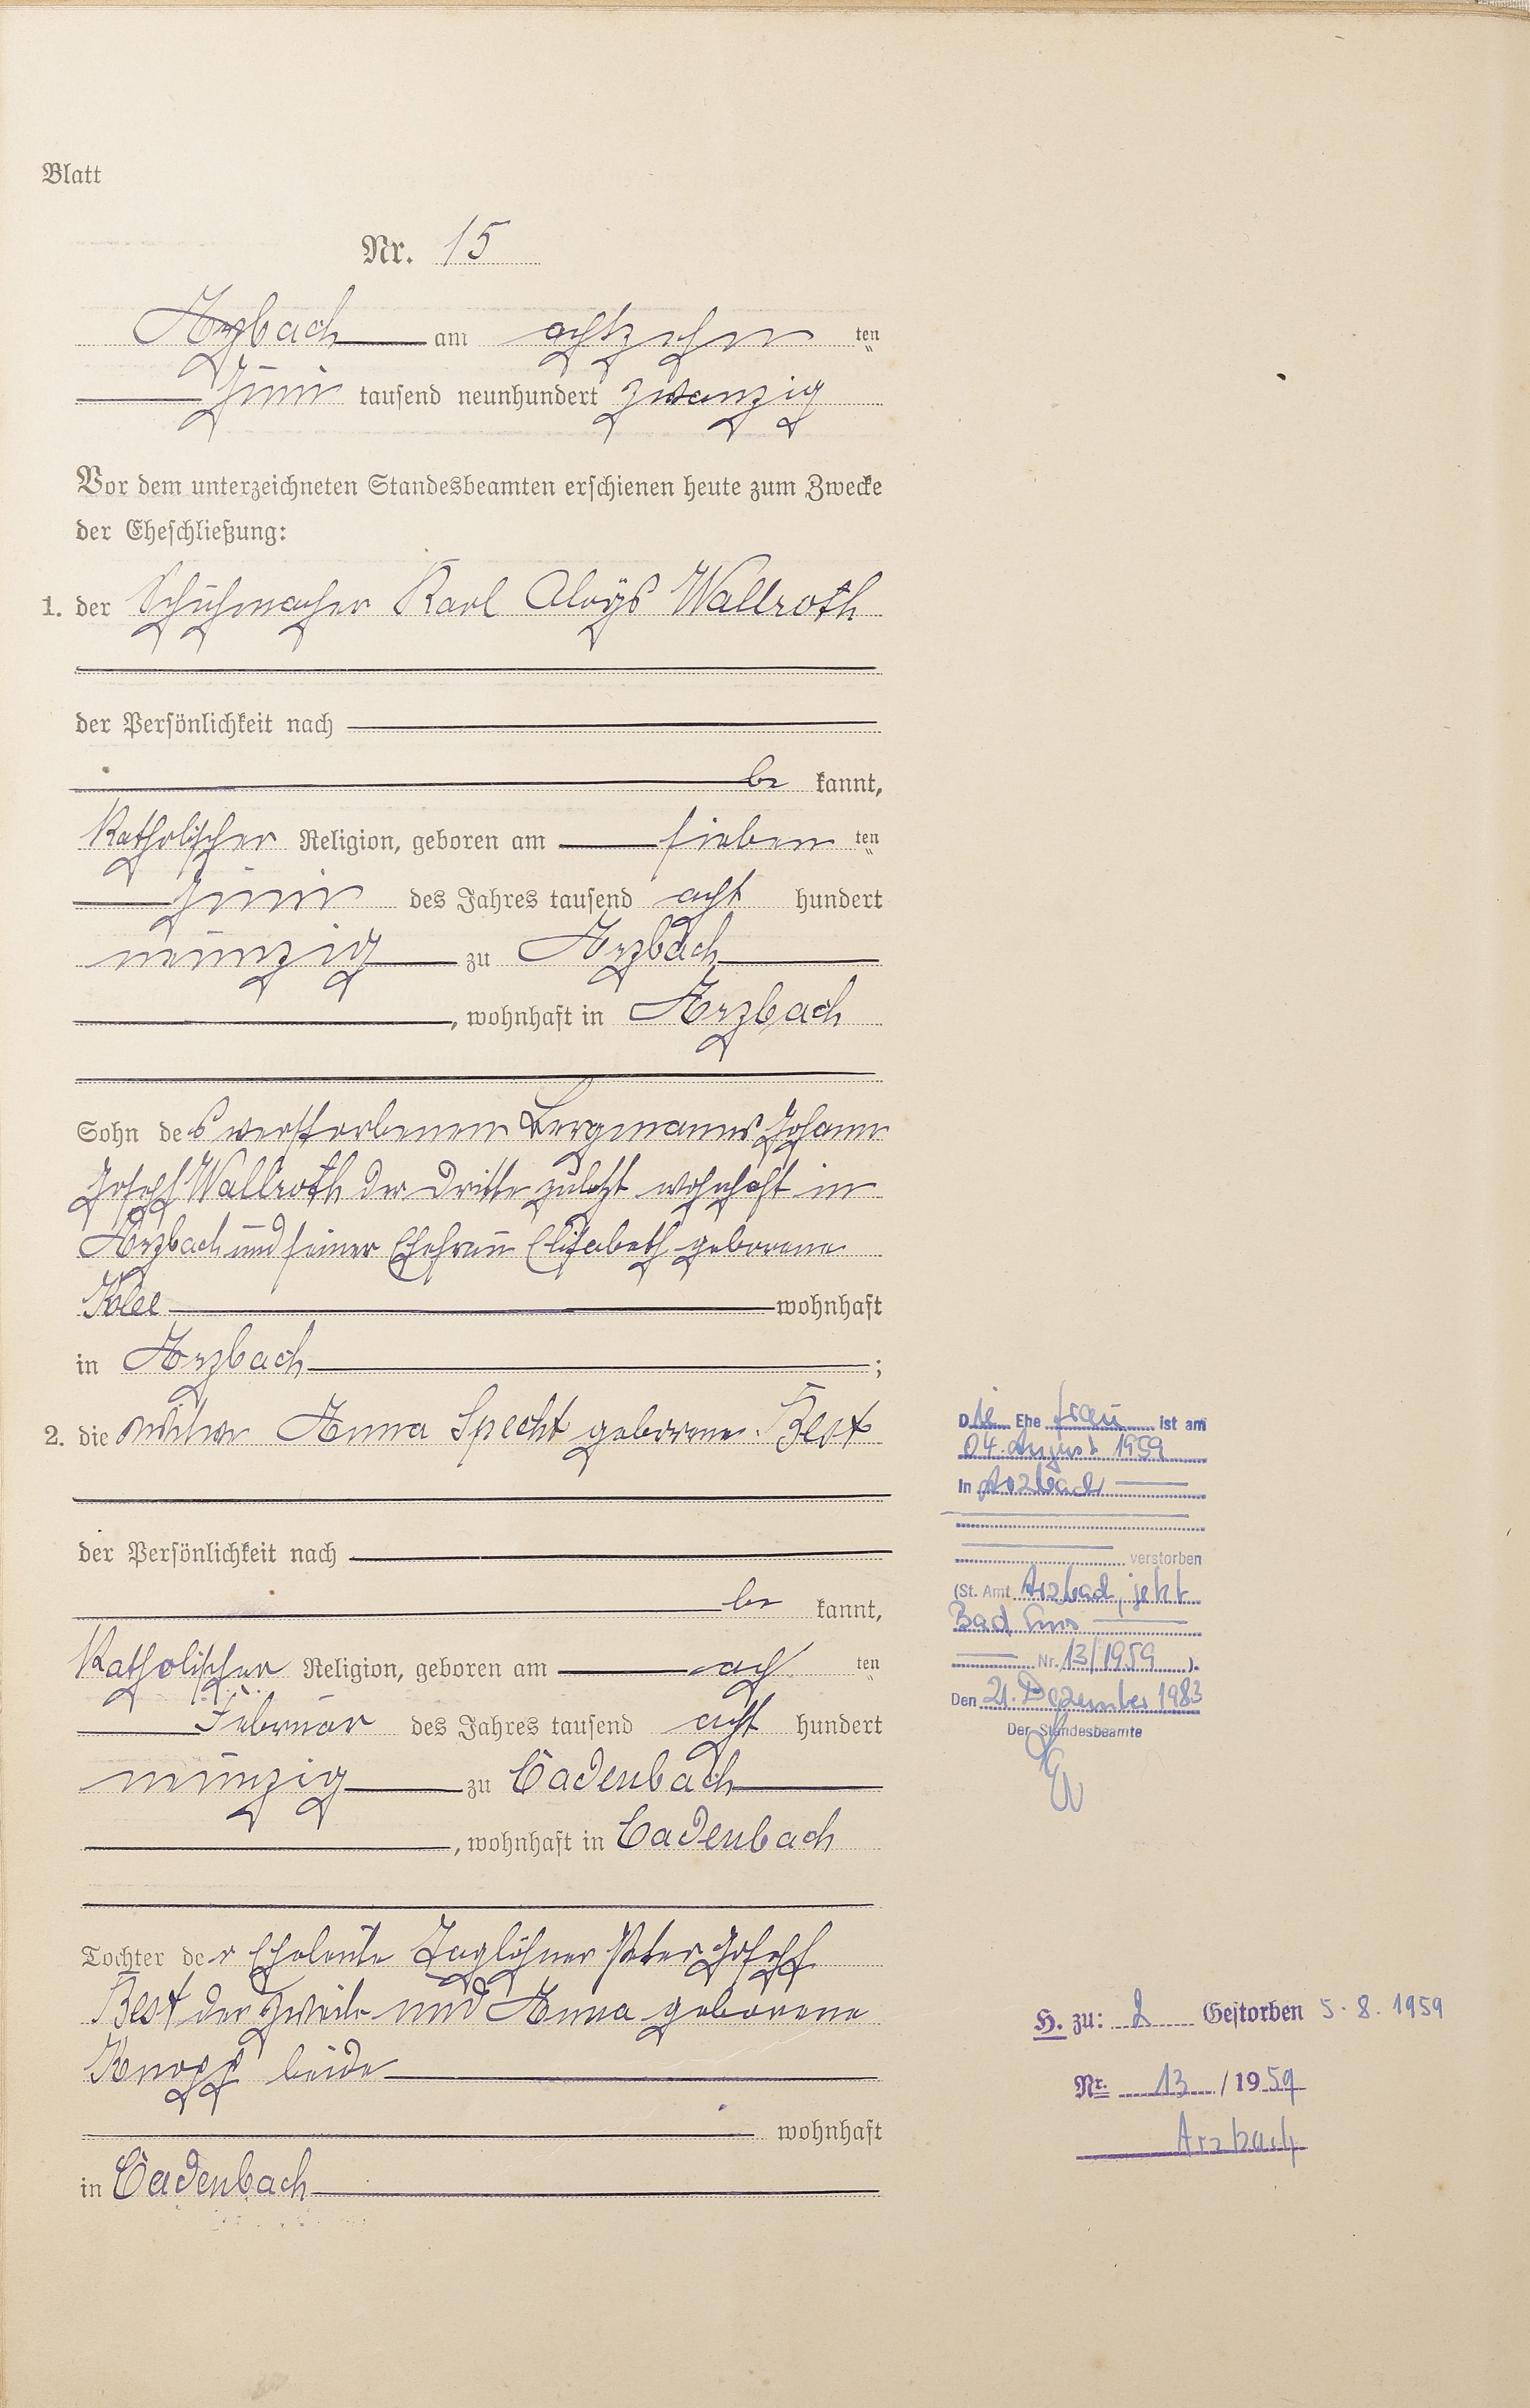 Blatt
Nr. 15
Arzbach am achtzehn ten
Juni tausend neunhundert zwanzig
Vor dem unterzeichneten Standesbeamten erschienen heute zum Zwecke
der Eheschließung:
1. der Schuhmacher Karl Aloys Wallroth
der Persönlichkeit nach
be kannt,
Katholischer Religion, geboren am sieben ten
Juni des Jahres tausend acht hundert
neunzig zu Arzbach
, wohnhaft in Arzbach
Sohn des verstorbenen Bergmanns Johann
Joseph Wallroth der Dritte zuletzt wohnhaft in
Arzbach und seiner Ehefrau Elisabeth geborene
wohnhaft
in Arzbach ;
2. die Witwe Anna Specht geborene Best
der Persönlichkeit nach
be kannt,
Katholischer Religion, geboren am ach ten
Februar des Jahres tausend acht hundert
neunzig zu Cadenbach
, wohnhaft in Cadenbach
Tochter der Eheleute Taglöhner Peter Joseph
Best der Zweite und Anna geborene
Knopp beide
wohnhaft
in Cadenbach
Die Ehe frau ist am
04. August 1959
in Arzbach
verstorben
(St. Amt Arzbach, jetzt
Bad Ems
Nr. 13/1959 ).
Den 21. Dezember 1983
Der Standesbeamte
H. zu: 2 Gestorben 5. 8. 1959
Nr. 13 / 1959
Arzbach